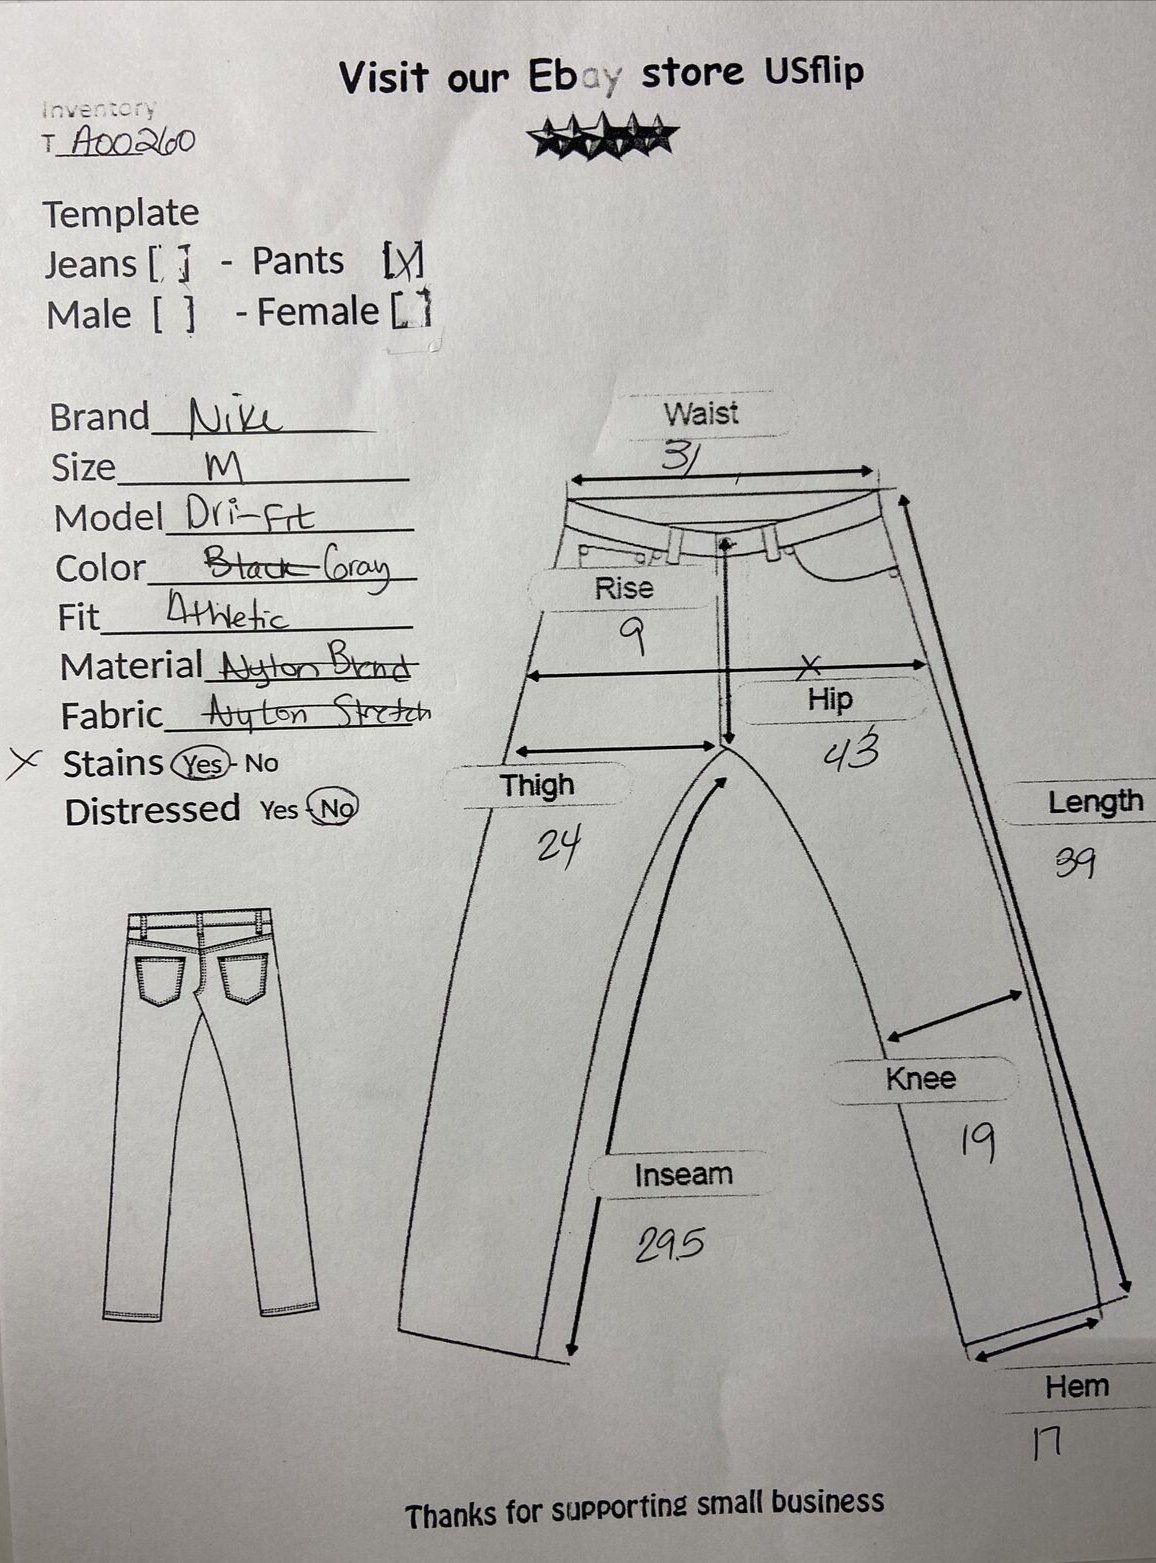 Visit our Ebay store USflip
Inventory
T A00260
Template
Jeans [ ] - Pants [X]
Male [ ] - Female [ ]
Brand Nike
Size M
Model Dri-Fit
Color Black Gray
Fit Athletic
Material Nylon Blend
Fabric Nylon Stretch
X Stains Yes - No
Distressed Yes - No
Waist
31
Rise
9
X
Hip
43
Thigh
24
Length
39
Knee
19
Inseam
29.5
Hem
17
Thanks for supporting small business